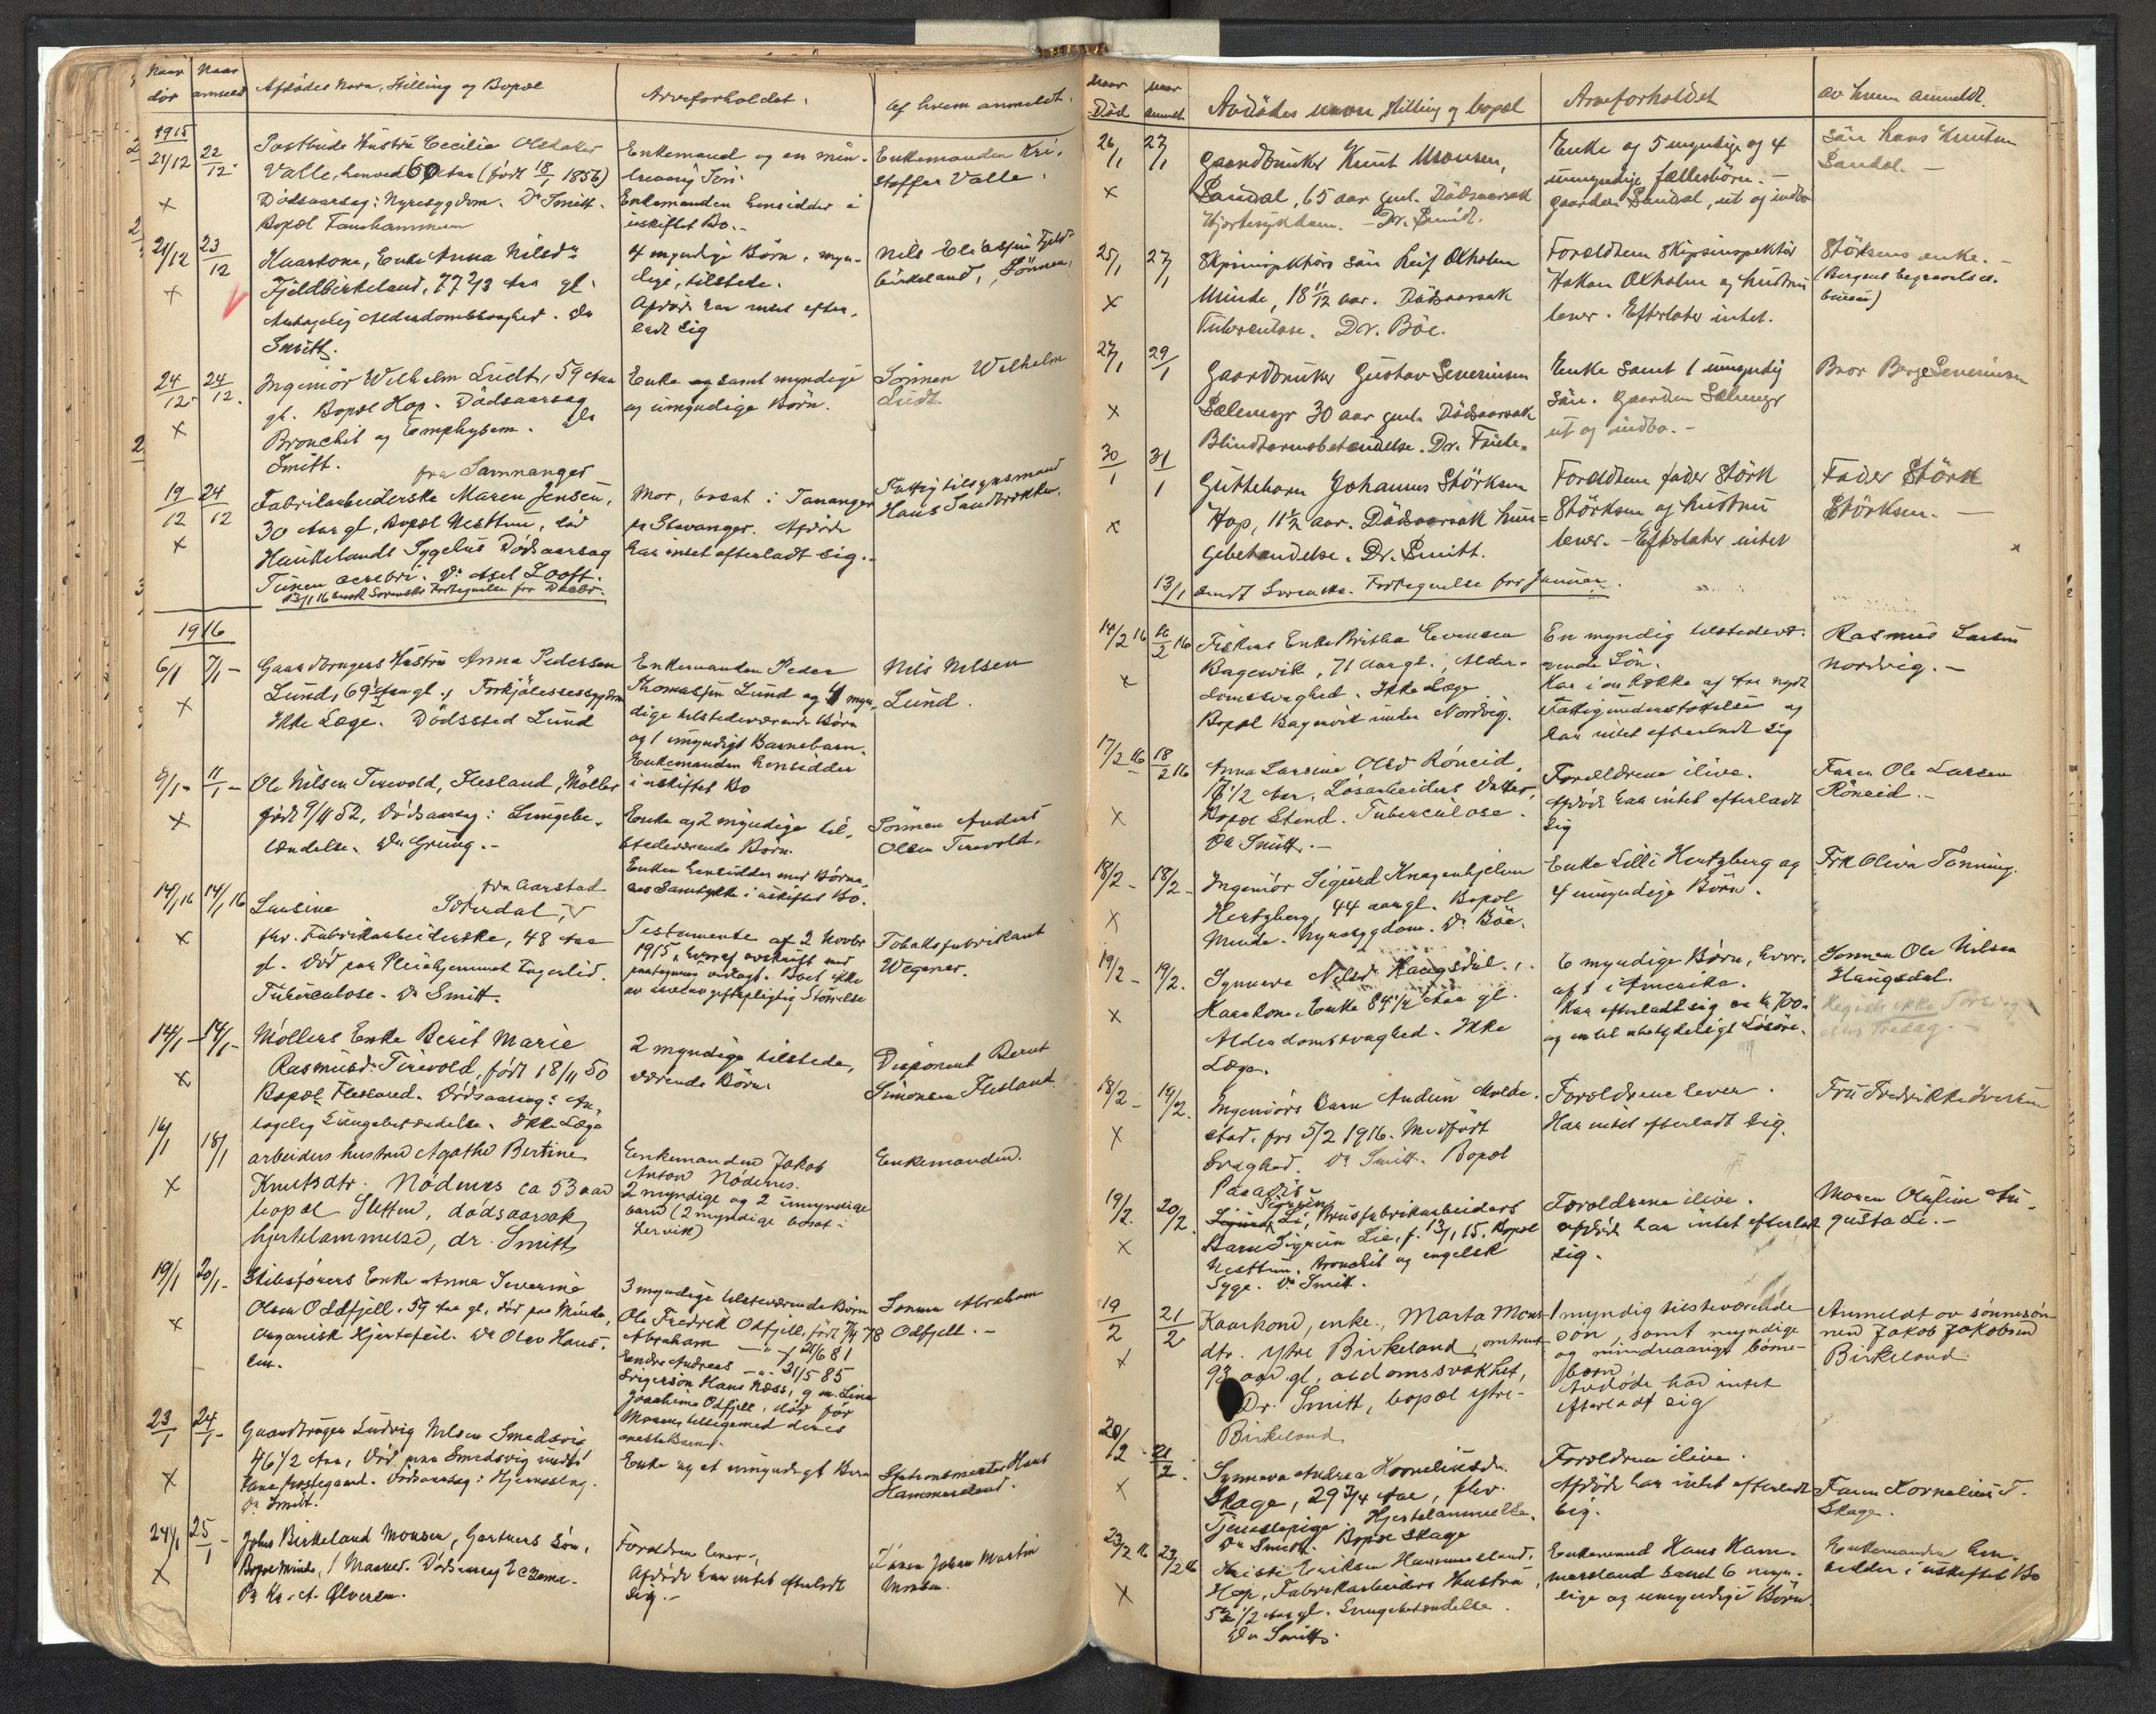 Naar Naar Afdödes Navn, Stilling og Bopæl Arveforholdet. Af hvem anmeldt.
dör anmeldt
1915
21/12 22/12 Postbuds Hustru Cecilia Olsdatter
Valle, henved 60 Aar (födt 18/1 1856)
Dödsaarsag: Nyresygdom. Dr Smitt.
Bopæl Fanehammeren
Enkemand og en min-
Enkemanden hensidder i
uskiftet Bo.
Enkemanden Kri-
stoffer Valle.
21/12 23/12 Kaarkone, Enke Anna Nilsdr
Fjeldbirkeland, 77 2/3 Aar gl.
Antagelig Alderdomssvaghed. Dr
Smitt.
4 myndige Börn, myn-
dige, tilstede.
Afdöde har intet efter-
ladt sig
Nils Eliassen Fjeld-
birkeland, Sönnen.
24/12 24/12 Ingeniör Wilhelm Lüdt, 59 Aar
gl. Bopæl Hop. Dödsaarsag
Bronchit og Emphysem. Dr
Smitt.
Enke og samt myndige
og umyndige Börn.
Sönnen Wilhelm
Lüdt
19/12 24/12 fra Samnanger
Fabrikarbeiderske Maren Jensen,
30 Aar gl, Bopæl Nesttun, död
Haukelands Sygehus Dödsaarsag
Tumor cerebri. Dr Axel Looft.
13/1 16 sendt Sorenskr Fortegnelse for Decbr.
Mor, bosat i Tananger
pr Stavanger. Afdöde
har intet efterladt sig.
Fattigtilsynsmand
Hans Sandbrekke.
1916
6/1 7/1 - Gaardbrugers Hustru Anna Pedersen
Lund, 69 1/2 Aar gl., Forkjölelsessygdom
Ikke Læge. Dödssted Lund
Enkemanden Peder
Thomassen Lund og 4 myn-
dige tilstedeværende Börn
og 1 umyndigt Barnebarn.
Enkemanden hensidder
i uskiftet Bo
Nils Nilsen
Lund.
9/1 - 11/1 - Ole Nilsen Tirevold, Flesland, Möller
födt 9/11 52, Dödsaarsag: Lungebe-
tændelse. Dr Grung.-
Enke og 2 myndige til-
stedeværende Börn.
Enken hensidder med Börne-
nes Samtykke i uskiftet Bo.
Sönnen Anders
Olsen Tirevold.
14/1 16 14/1 16 fra Aarstad
Laurine Sörerdal,
fhv. Fabrikarbeiderske, 48 Aar
gl. Död paa Pleiehjemmet Fagerlid.
Tuberculose. Dr Smitt.
Testamente af 2 Novbr
1915, hvoraf avskrift med
paategning vedlagt. Boet ikke
av arveavgiftspligtig Störrelse
Tobaksfabrikant
Wegener.
14/1 - 14/1 - Möllers Enke Berit Marie
Rasmusdr Tirevold, födt 18/11 50
Bopæl Flesland. Dödsaarsag: An-
tagelig Lungebetændelse. Ikke Læge
2 myndige tilstede-
værende Börn.
Disponent Bernt
Simonsen Flesland.
16/1 18/1 arbeiders hustru Agathe Bertine
Knutsdtr. Nödenes ca 53 aar
bopæl Sletten, dödsaarsak
hjertelammelse, dr. Smitt
Enkemanden Jakob
Anton Nödenes.
2 myndige og 2 umyndige
barn (2 myndige bosat i
Lervik)
Enkemanden.
19/1 20/1 - Skibsförers Enke Anna Severine
Olsen Oddfjell. 59 Aar gl, död paa Minde,
Organisk Hjertefeil. Dr Olav Hans-
sen.
3 myndige tilstedeværende Börn
Ole Fredrik Odfjell, födt 7/4 78
Abraham -"- 21/6 81
Endre Andreas -"- 31/5 85
Hans Næss, g m. Lina
Joachime Odfjell, död för
Moren tilligemed deres
eneste Barn.
Sönnen Abraham
Odfjell. -
23/1 24/1 - Gaardbruger Ludvig Nilsen Smedsvig
46 1/2 Aar, Död paa Smedsvig
Fane Prestegaard. Dödsaarsag: Hjerneslag.
Dr Smitt.
Enke og et umyndigt Barn
Stationsmester Hans
Hammersland.
24/1 25/1 - John Birkeland Monsen, Gartners Sön,
Bopæl Minde, 1 Maaned. Dödsaarsag Eczema.
Dr Kr. A. Ölversen.
Foreldrene lever,
Afdöde har intet efterladt
sig.-
Faren Johan Martin
Monsen.
Naar Naar Avdödes navn, stilling og bopæl Arveforholdet av hvem anmeldt.
Död anmeldt
26/1 27/1 Gaardbruker Knut Monsen,
Sandal, 65 aar gml. Dödsaarsak
Hjertesykdom. - Dr. Smitt.
Enke og 5 myndige og 4
umyndige fællesbörn. -
gaarden Sandal, ut og indbo
Sön Lars Knutsen
Sandal. -
25/1 27/1 Skipsinspektörs sön Leif Oxholm
Minde, 18 11/12 aar. Dödsaarsak
Tuberculose. Dr. Böe.
Foreldrene Skipsinspektör
Hakon Oxholm og hustru
lever. Efterlater intet.
Störksens enke. -
(Bergens begravelses-
bureau)
27/1 29/1 Gaardbruker Gustav Severinsen
Sælemyr 30 aar gml. Dödsaarsak
Blindtarmsbetændelse. Dr. Friele.
Enke samt 1 umyndig
sön. Gaarden Sælemyr
ut og indbo. -
Bror Berge Severinsen
30/1 31/1 Guttebarn Johannes Störksen
Hop, 11 1/2 aar. Dödsaarsak lun-
gebetændelse. Dr. Smitt.
Foreldrene fader Störk
Störksen og hustru
lever. - Efterlater intet
Fader Störk
Störksen. -
13/1 sendt Sorenskr. Fortegnelse for Januar.
14/2 16 16/2 16 Fiskers Enke Brithe Evensen
Bagervik, 71 Aar gl., Alder-
domssvaghed. Ikke Læge
Bopæl Bagervik under Nordvig.
En myndig tilstedevæ-
rende Sön.
Har i en Række af Aar nydt
Fattigunderstöttelse og
har intet efterladt sig
Rasmus Larsen
Nordvig. -
17/2 16 18/2 16 Anna Larsine Olsd Röneid,
16 1/2 Aar, Lösarbeiders Datter,
Bopæl Stend. Tuberculose.
Dr Smitt. -
Forældrene ilive.
Afdöde har intet efterladt
sig
Faren Ole Larsen
Röneid. -
18/2 - 18/2 - Ingeniör Sigurd Knagenhjelm
Hertzberg, 44 aar gl. Bopæl
Minde. Nyresygdom. Dr Böe.
Enke Lilli Hertzberg og
4 umyndige Börn.
Frk Oliva Tanning.
19/2 - 19/2. Synneve Nilsdr Haugsdal.,
Kaarkone, Enke 84 1/2 Aar gl.
Alderdomssvaghed. Ikke
Læge.
6 myndige Börn, hvor-
af 1 i Amerika.
Har efterladt sig ca kr 700.-
og endel ubetydeligt Lösöre.
Sönnen Ole Nilsen
Haugsdal.
18/2 - 19/2. Ingeniörs Barn Audun Molde-
stad, fra 5/2 1916. Medfödt
Svaghed. Dr Smitt. Bopæl
Paradis.
Forældrene lever.
Har intet efterladt sig.
Fru Fredrikke Iversen
19/2. 20/2. Sigrun
Lie, Brusfabrikarbeiders
Barn Sigrun Lie, f. 13/1 15. Bopæl
Nesttun. Bronchit og engelsk
Syge. Dr Smitt.
Forældrene ilive.
Afdöde har intet efterladt
sig.
Moren Olufine Au-
gusta Li. -
19/2 21/2 Kaarkone, enke, Marta Mons-
dtr. Ytre Birkeland, omtrent
93 aar gl, alldomssvakhet,
Dr. Smitt, bopæl ytre-
Birkeland
1 myndig tilstedeværende
sön, samt myndige
og mindreaarige börne-
börn
Avdöde har intet
efterladt sig
Anmeldt av sönnesön-
nen Jakob Jakobsen
Birkeland.
20/2 21/2. Synneva Andrea Kornelius dr.
Skage, 29 3/4 Aar, fhv.
Tjenestepige. Hjertelammelse.
Dr Smitt. Bopæl Skage
Forældrene ilive.
Afdöde har intet efterladt
sig.
Faren Kornelius T.
Skage.
23/2 16 23/2 16 Kristi Eriksen Hammersland,
Hop, Fabrikarbeiders Hustru,
52 1/2 Aar gl. Lungebetændelse.
Dr Smitt.
Enkemand Hans Ham-
mersland samt 6 myn-
dige og umyndige Börn.
Enkemanden hen-
sidder i uskiftet Bo